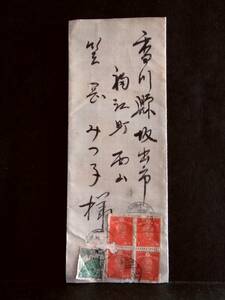 香川縣坂出市
福江町西山
笠岡みつ子様